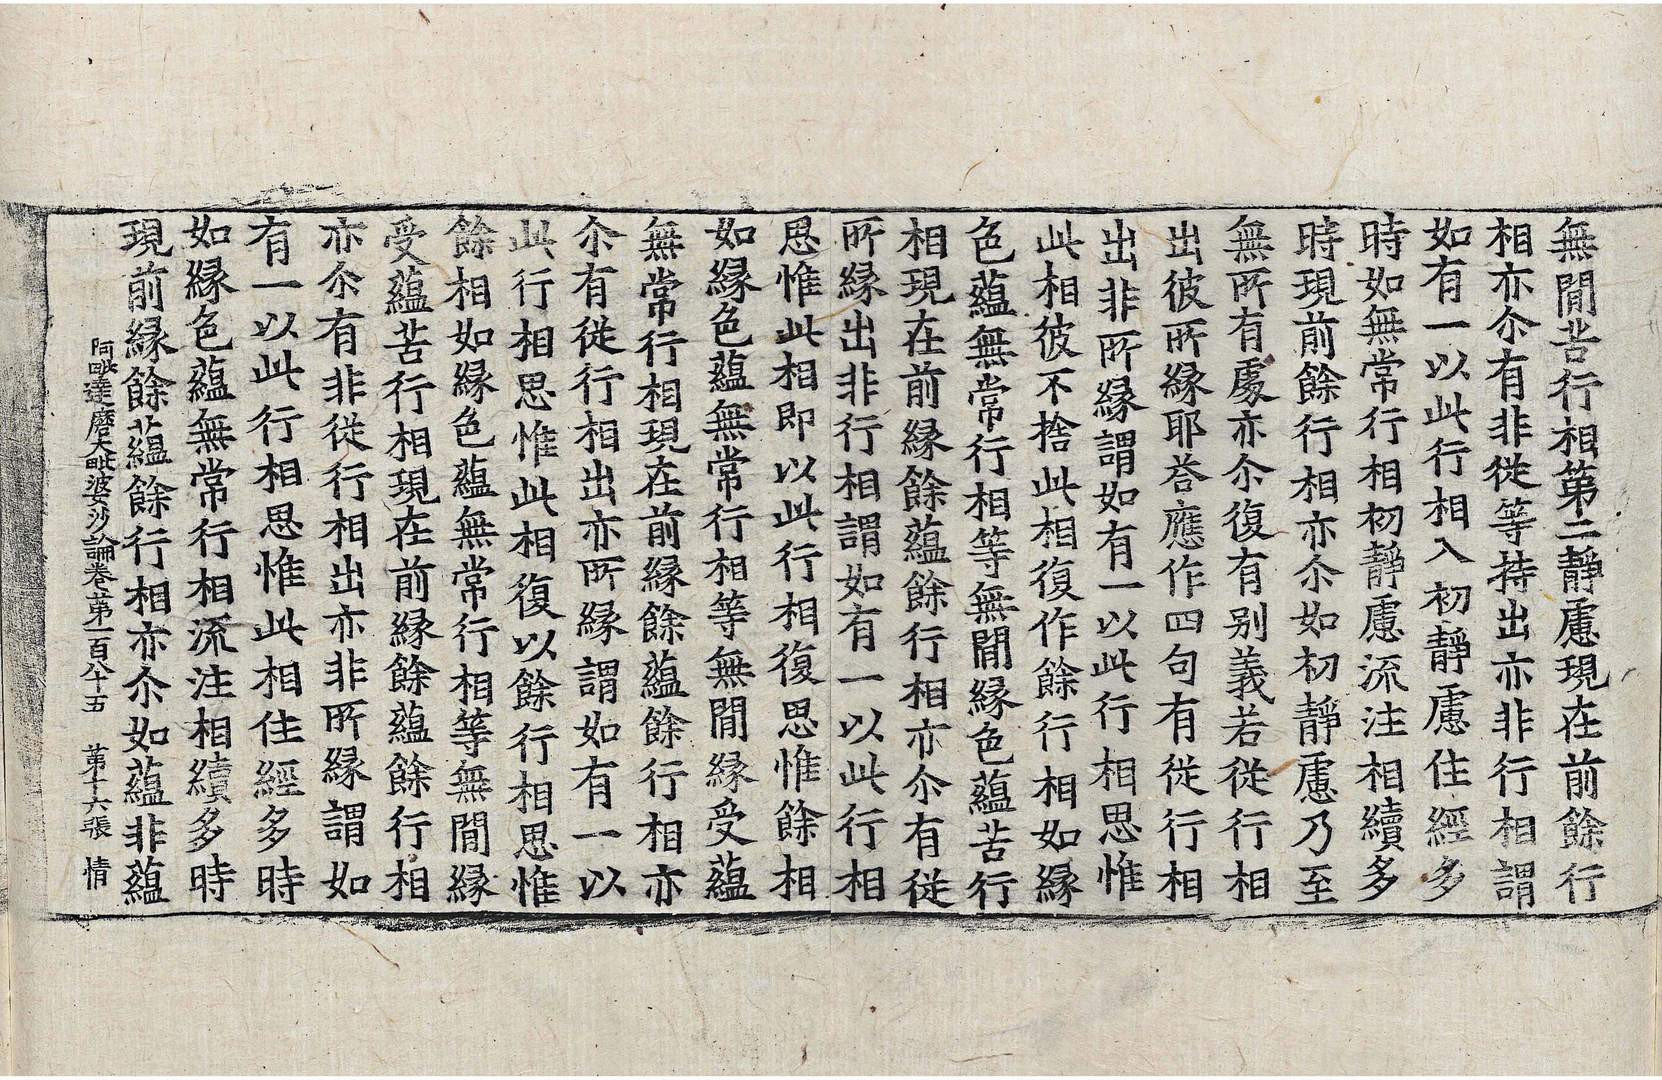 無閒苦行相第二靜慮現在前餘行
相亦尒有非從等持出亦非行相謂
如有一以此行相入初靜慮住經多
時如無常行相初靜慮流注相續多
時現前餘行相亦尒如初靜慮乃至
無所有處亦尒復有別義若從行相
出彼所縁耶荅應作四句有從行相
出非所縁謂如有一以此行相思惟
此相彼不捨此相復作餘行相如縁
色蘊無常行相等無閒縁色蘊苦行
相現在前縁餘蘊餘行相亦尒有從
所縁出非行相謂如有一以此行相
思惟此相即以此行相復思惟餘相
如縁色蘊無常行相等無閒縁受蘊
無常行相現在前縁餘蘊餘行相亦
尒有從行相出亦所縁謂如有一以
此行相思惟此相復以餘行相思惟
餘相如縁色蘊無常行相等無閒縁
受蘊苦行相現在前縁餘蘊餘行相
亦尒有非從行相出亦非所縁謂如
有一以此行相思惟此相住經多時
如縁色蘊無常行相流注相續多時
現前縁餘蘊餘行相亦尒如蘊非蘊
阿毗達磨大毗婆沙論卷第一百八十五 第十六張 情